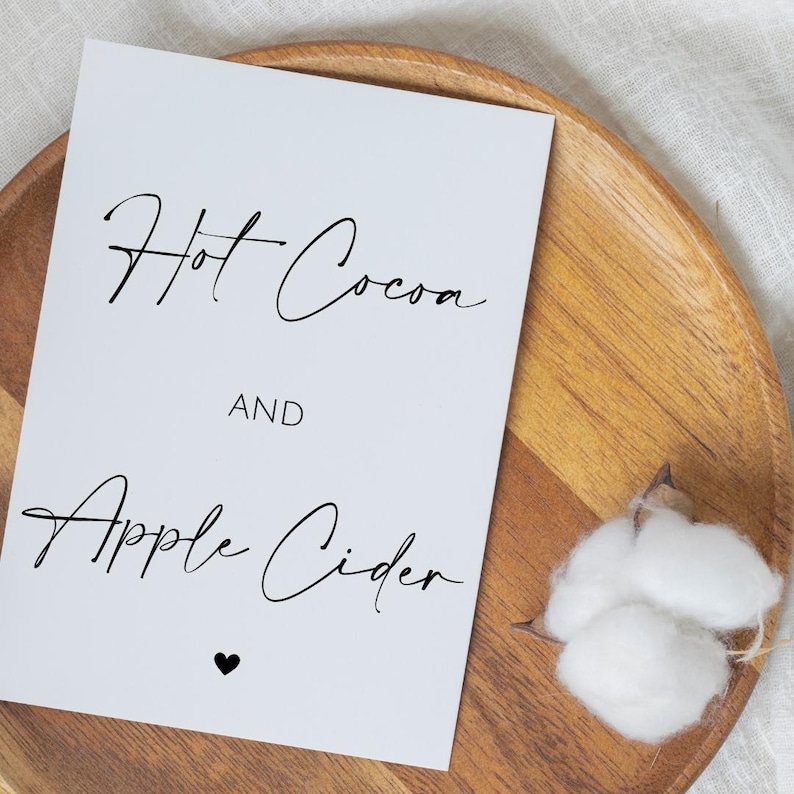 Hot Cocoa
AND
Apple Cider